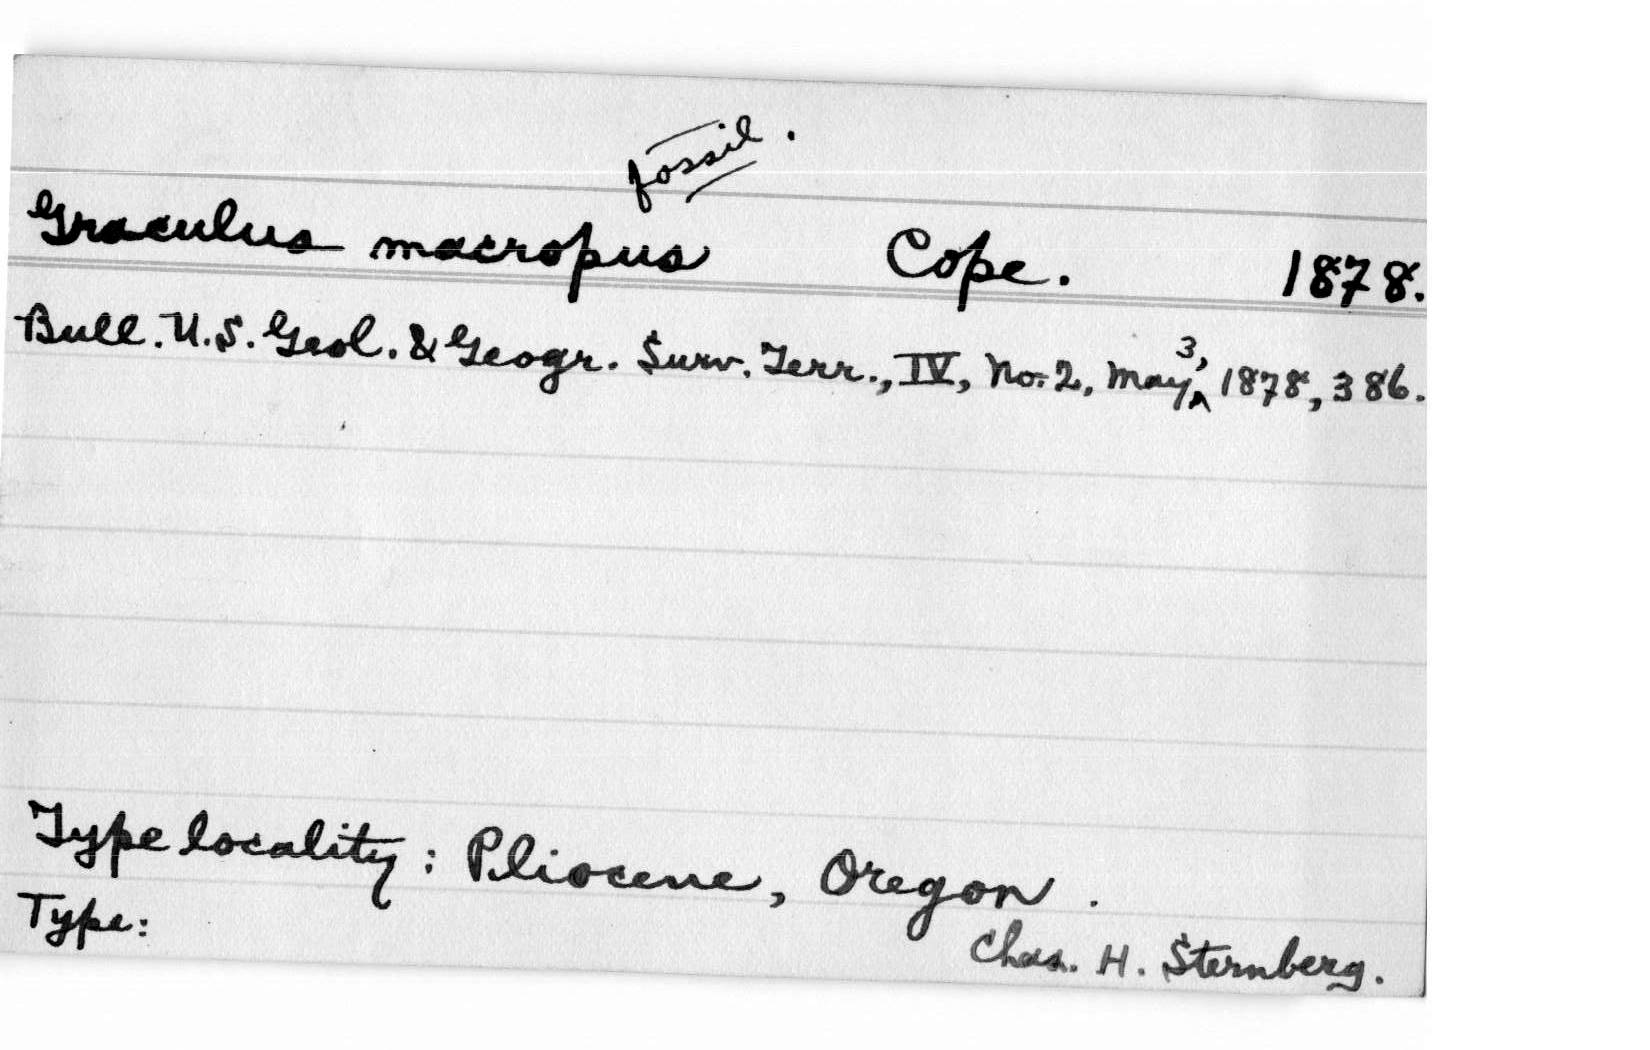 fossil.
Graculus macropus Cope. 1878.
Bull. U.S. Geol. & Geogr. Surv. Terr., IV, No. 2, May 3, 1878, 386.
Type locality: Pliocene, Oregon.
Type:
Chas. H. Sternberg.